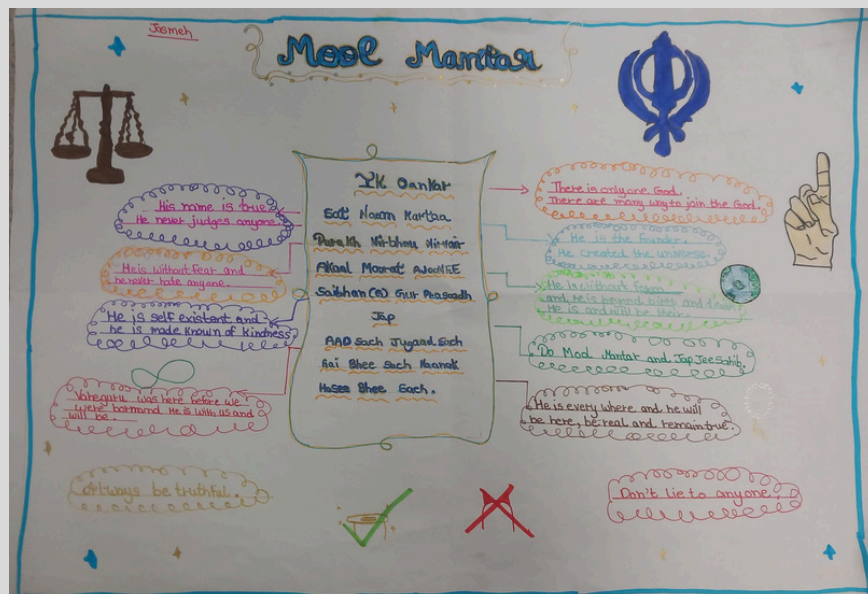 Jasmeh
Mool Mantar
IK Oankar
Sat Naam Kartaa
Purakh Nirbhau Nirvair
Akaal Moorat AJooNEE
Saibhan(g) Gur Phasaadh
Jap
AAD Sach Jugaad Sach
Hai Bhee Sach Naanak
Hosee Bhee Sach.
His name is true
He never judges anyone.
He is without fear and
he never hate anyone.
He is self existent and
he is made known of kindness
Vaheguru was here before we
were born and He is with us and
will be.
Always be truthful.
There is only one God.
There are many way to join the God.
He is the founder.
He created the universe.
He is without
and he is beyond birth and
He is and will be their.
Do Mool Mantar and Jap Jee Sahib.
He is every where and he will
be here, be real and remain true.
Don't lie to anyone.